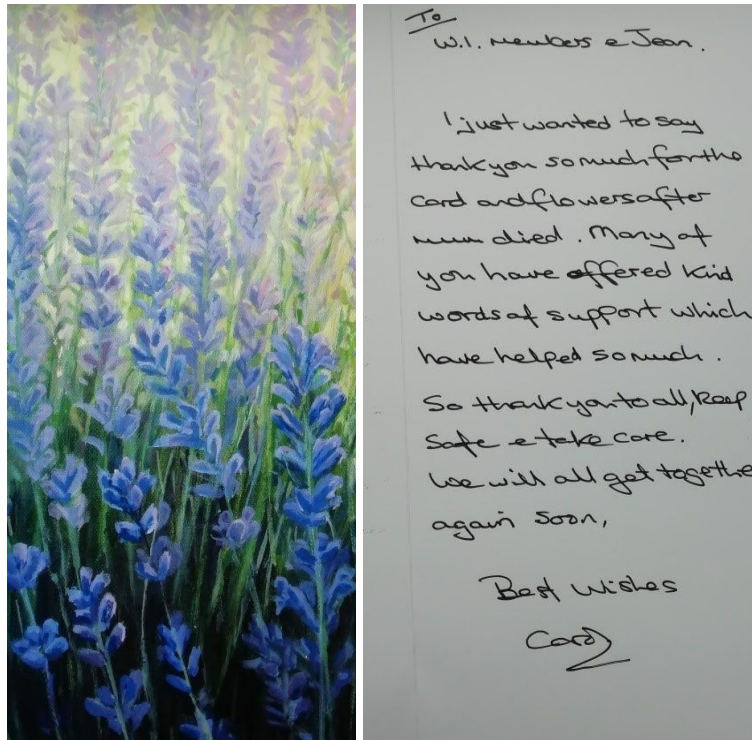 To
W.I. members & Jean.
I just wanted to say
thank you so much for the
card and flowers after
mum died. Many of
you have offered kind
words of support which
have helped so much.
So thank you to all, keep
safe & take care.
We will all get togethe
again soon,
Best Wishes
Carol